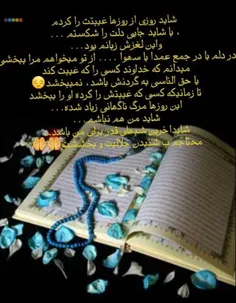 شاید روزی از روزها غیبتت را کردم
، یا شاید جایی دلت را شکستم ...
واین لغزش زبانم بود...
در دلم یا در جمع عمدا یا سهوا .... از تو میخواهم مرا ببخشی
میدانم که خداوند کسی را که غیبت کند
یا حق الناسی به گردنش باشد ، نمیبخشد
تا زمانیکه کسی که غیبتش را کرده او را ببخشد
این روزها مرگ ناگهانی زیاد شده...
شاید من هم نباشم...
شایدا خرین شبهای قدر برای من باشد
محتاجم ب شنیدن حلالیت و بخششت